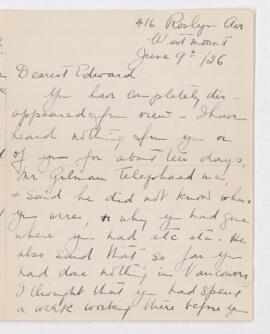 416 Roslyn Ave
Westmount
June 9th /26.
Dearest Edward.
You have completely dis-
appeared from view - I have
heard nothing from you or
of you for about ten days.
Mr Gilman telephoned me
& said he did not know when
you were, or why you had gone
where you had etc etc. He
also said that so far you
had done nothing in Vancouver
I thought that you had spent
a week working there before you